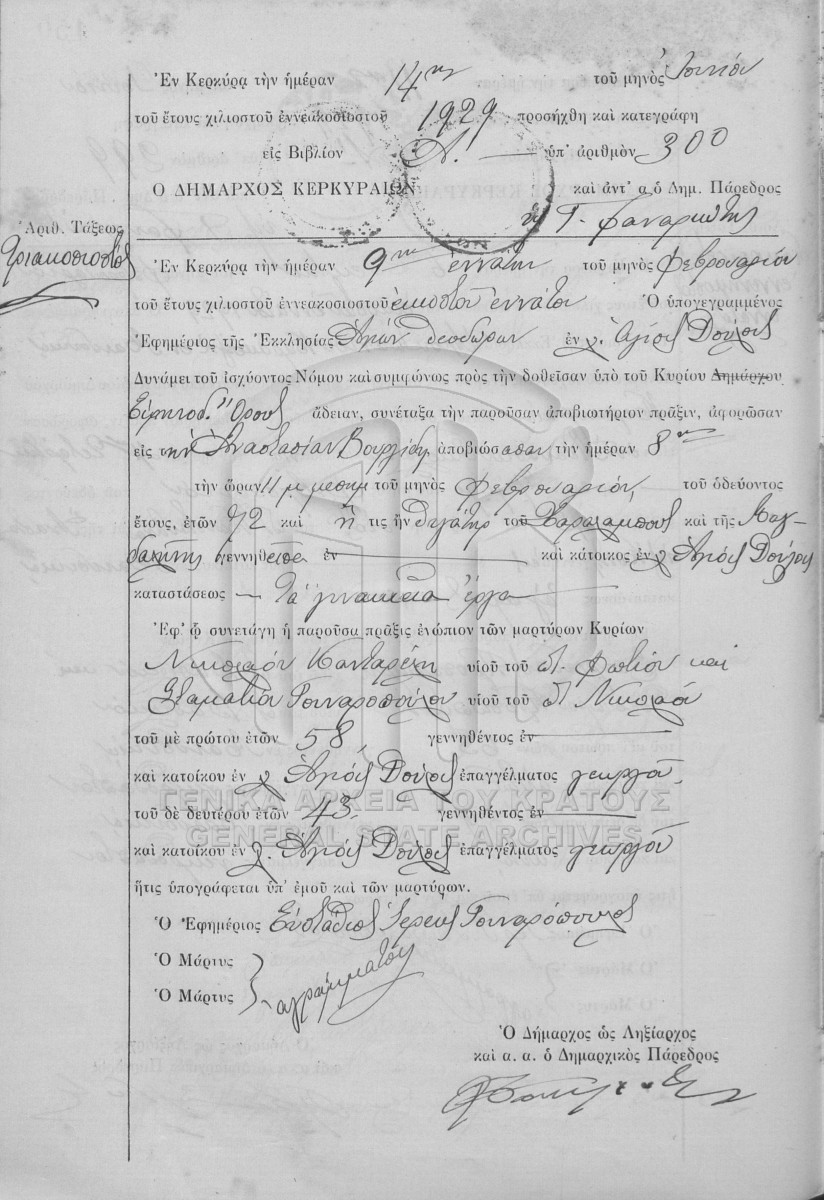 Ἐν Κερκύρᾳ τὴν ἡμέραν 14ην τοῦ μηνὸς Ἰουνίου
τοῦ ἔτους χιλιοστοῦ ἐννεακοσιοστοῦ 1929 προσήχθη καὶ κατεγράφη
εἰς Βιβλίον Α. ὑπ' ἀριθμὸν 300
Ο ΔΗΜΑΡΧΟΣ ΚΕΡΚΥΡΑΙΩΝ καὶ ἀντ' α.ὁ Δημ. Πάρεδρος
Γ. Φαναριώτης
Ἀριθ. Τάξεως
τριακοσιοστός
Ἐν Κερκύρᾳ τὴν ἡμέραν 9ην ἐννάτην τοῦ μηνὸς Φεβρουαρίου
τοῦ ἔτους χιλιοστοῦ ἐννεακοσιοστοῦ εἰκοστοῦ ἐννάτου Ὁ ὑπογεγραμμένος
Ἐφημέριος τῆς Ἐκκλησίας Ἁγίων Θεοδώρων ἐν χ. Ἁγίοις Δούλοις
Δυνάμει τοῦ ἰσχύοντος Νόμου καὶ συμφώνως πρὸς τὴν δοθεῖσαν ὑπὸ τοῦ Κυρίου Δημάρχου
Εἰρηνοδ. Ὄρους ἄδειαν, συνέταξα τὴν παροῦσαν ἀποβιωτήριον πρᾶξιν, ἀφορῶσαν
εἰς τὴν Ἀναστασίαν ἀποβιώσασαν τὴν ἡμέραν 8ην
τὴν ὥραν 11 μ. μεσημ τοῦ μηνὸς Φεβρουαρίου, τοῦ ὁδεύοντος
ἔτους, ἐτῶν 72 καὶ ἥτις ἦν θυγάτηρ τοῦ Χαραλάμπους καὶ τῆς Μαγ-
δαληνῆς γεννηθεῖσα ἐν καὶ κάτοικος ἐν χ Ἁγίοις Δούλοις
καταστάσεως τὰ γυναικεῖα ἔργα
Ἐφ' ᾧ συνετάγη ἡ παροῦσα πρᾶξις ἐνώπιον τῶν μαρτύρων Κυρίων
Νικολάου Κανταρέλη υἱοῦ τοῦ Φωτίου καὶ
Σταματίου Τσιναροπούλου υἱοῦ τοῦ Νικολάου
τοῦ μὲ πρώτου ἐτῶν 58, γεννηθέντος ἐν
καὶ κατοίκου ἐν χ Ἁγίοις Δούλοις ἐπαγγέλματος γεωργοῦ.
ΓΕΝΙΚΑ ΑΡΧΕΙΑ ΤΟΥ ΚΡΑΤΟΥΣ
τοῦ δὲ δευτέρου ἐτῶν 43. γεννηθέντος ἐν
GENERAL STATE ARCHIVES
καὶ κατοίκου ἐν χ. Ἁγίοις Δούλοις ἐπαγγέλματος γεωργοῦ
ἥτις ὑπογράφεται ὑπ' ἐμοῦ καὶ τῶν μαρτύρων.
Ὁ Ἐφημέριος Εὐστάθιος Ἱερεὺς Τσιναρόπουλος
Ὁ Μάρτυς
Ὁ Μάρτυς ἀγράμματοι
Ὁ Δήμαρχος ὡς Ληξίαρχος
καὶ α. α. ὁ Δημαρχικὸς Πάρεδρος